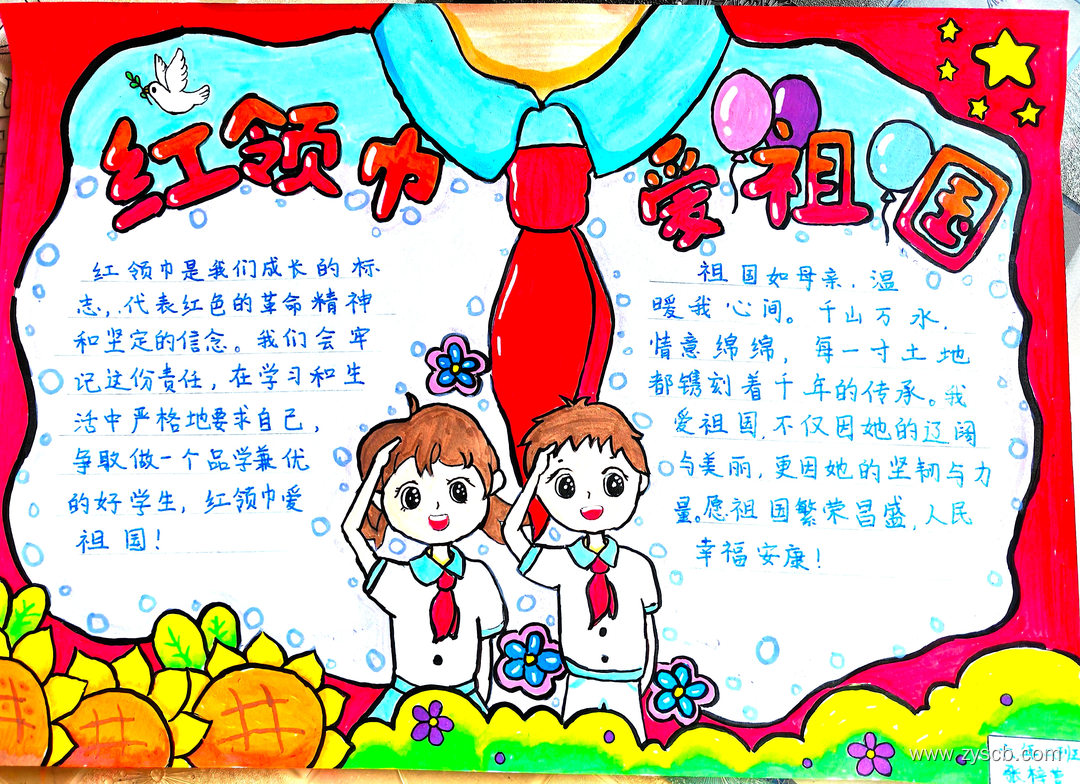 红领巾
爱祖国
红领巾是我们成长的标
志,代表红色的革命精神
和坚定的信念。我们会牢
记这份责任,在学习和生
活中严格地要求自己,
争取做一个品学兼优
的好学生,红领巾爱
祖国!
祖国如母亲,温
暖我心间。千山万水,
情意绵绵,每一寸土地
都镌刻着千年的传承。我
爱祖国,不仅因她的辽阔
与美丽,更因她的坚韧与力
量。愿祖国繁荣昌盛,人民
幸福安康!
www.zyscb.com